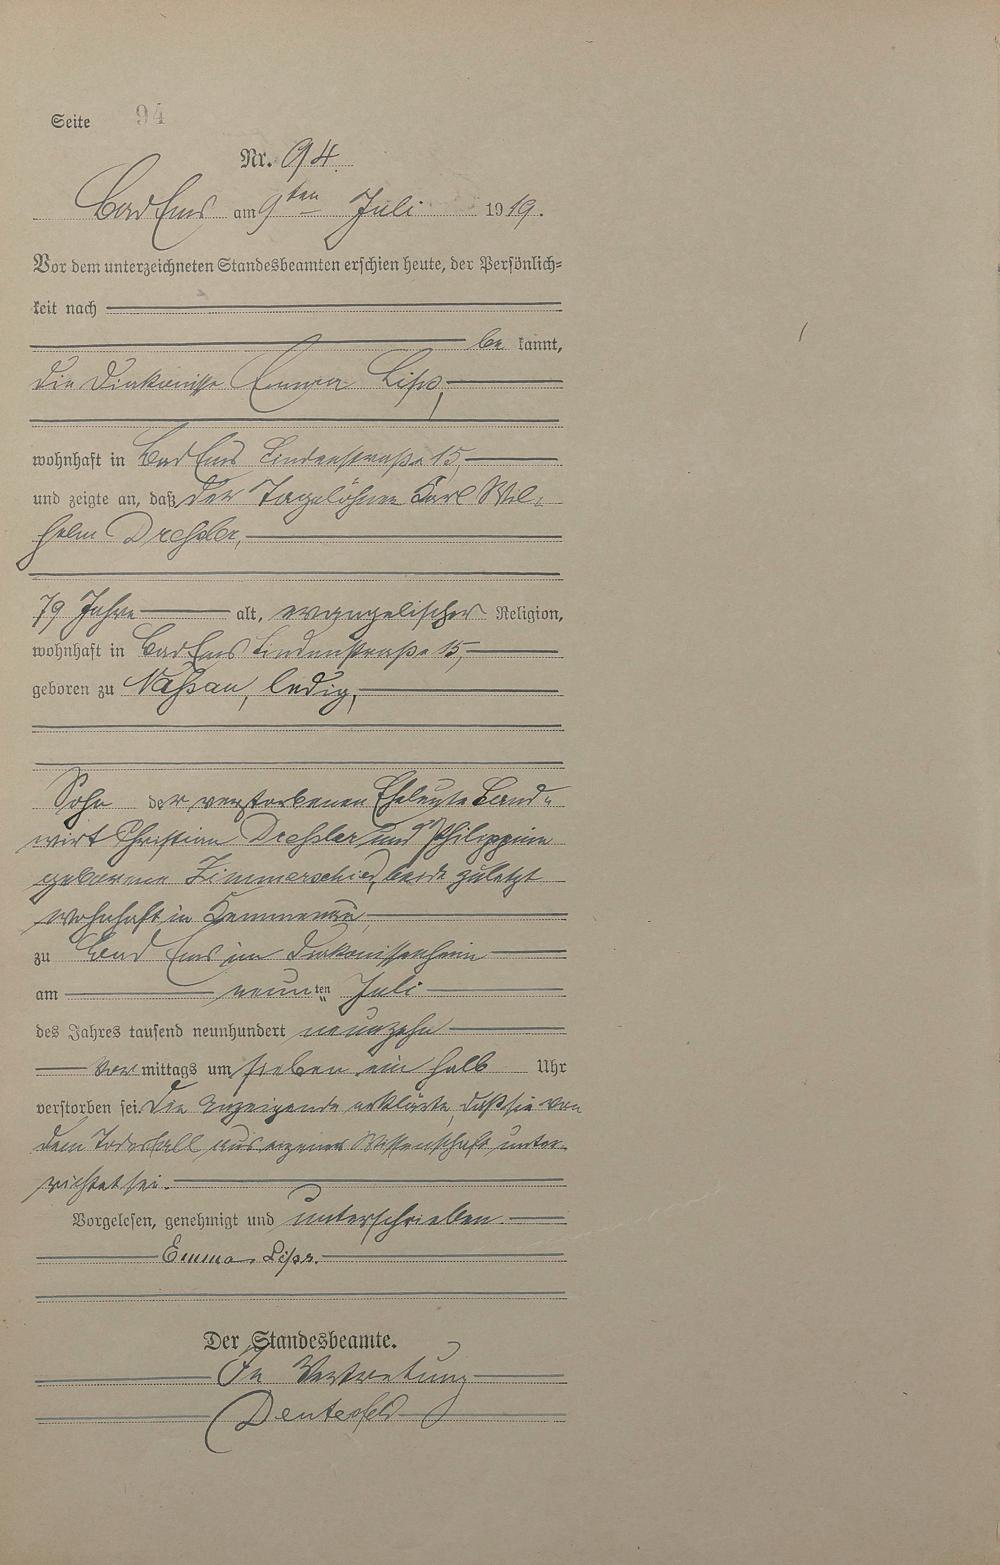 Seite 94
Nr. 94.
Bad Ems am 9ten Juli 1919.
Vor dem unterzeichneten Standesbeamten erschien heute, der Persönlich=
keit nach
be kannt,
die Diakonisse Emma Lips,
wohnhaft in Bad Ems Lindenstraße 15,
und zeigte an, daß der Tagelöhner Karl Wil=
helm Dreßler,
79 Jahre alt, evangelischer Religion,
wohnhaft in Bad Ems Lindenstraße 15,
geboren zu Nassau, ledig,
Sohn der verstorbenen Eheleute Land=
wirt Christian Dreßler und Philippine
geborene Zimmerschied, beide zuletzt
wohnhaft in Kemmenau,
zu Bad Ems im Diakonissenheim
am neunten Juli
des Jahres tausend neunhundert neunzehn
Vor mittags um sieben ein halb Uhr
verstorben sei. Die Anzeigende erklärte, daß sie von
dem Todesfall aus eigener Wissenschaft unter=
richtet sei.
Vorgelesen, genehmigt und unterschrieben.
Emma Lips.
Der Standesbeamte.
In Vertretung